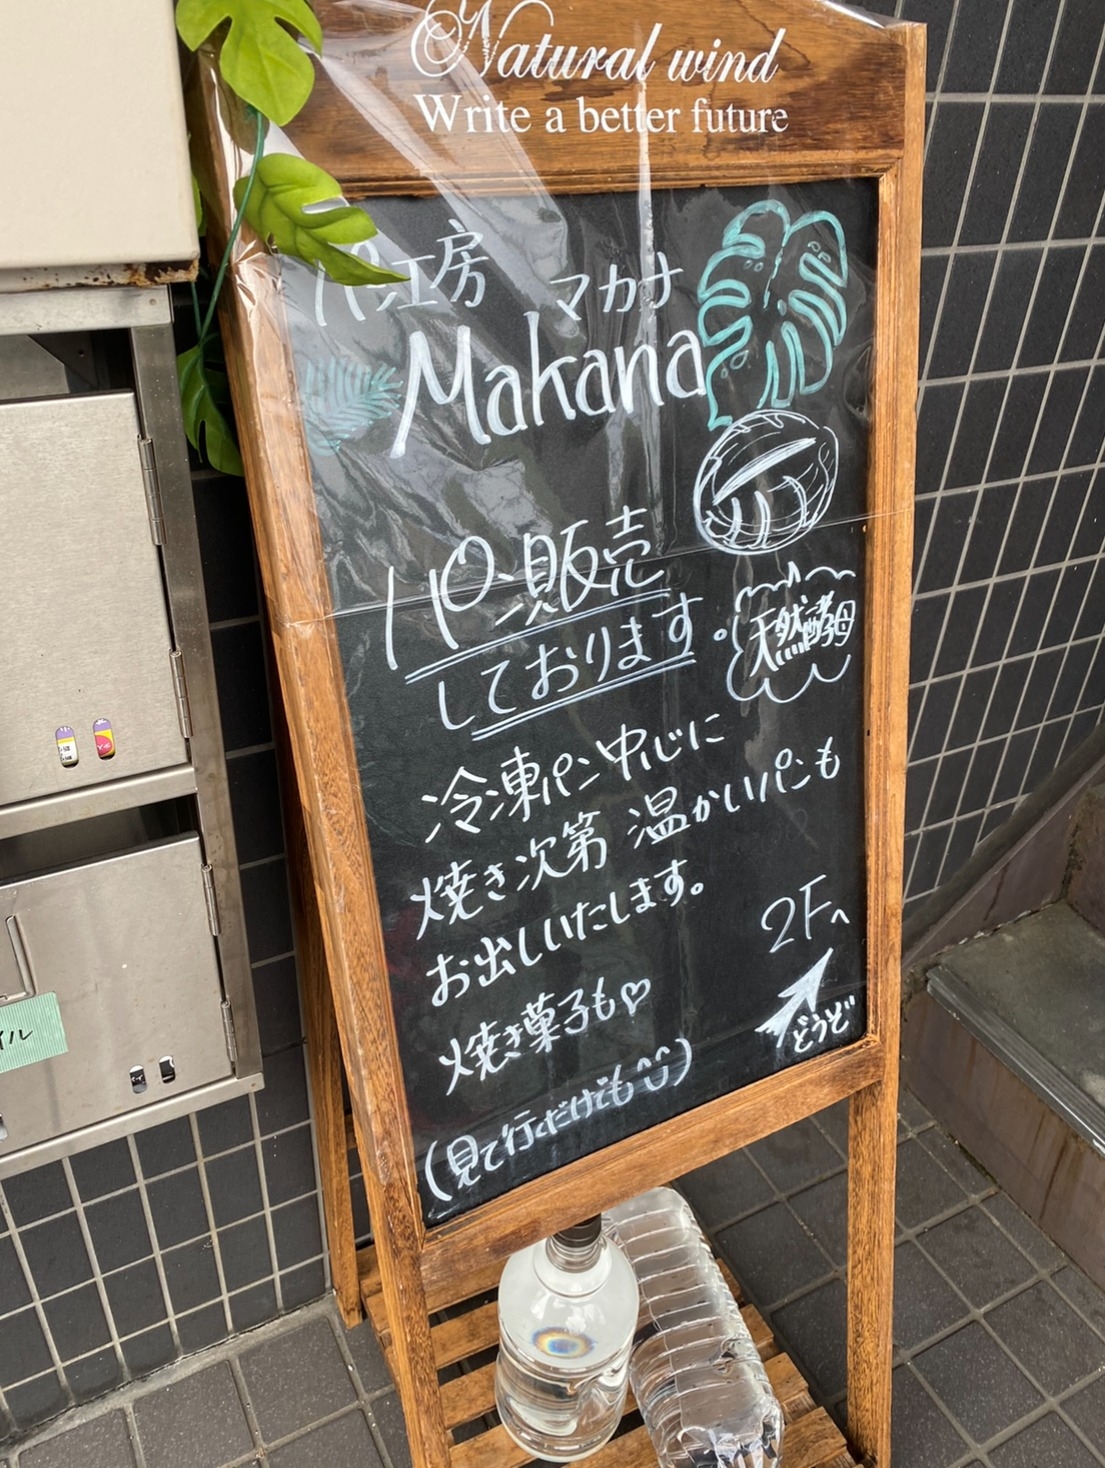 Natural wind
Write a better future
パン工房 マカナ
Makana
パン販売
しております。
天然酵母
冷凍パン中心に
焼き次第 温かいパンも
お出しいたします。
焼き菓子も♡
2Fへ
どうぞ
(見て行くだけでも
イル